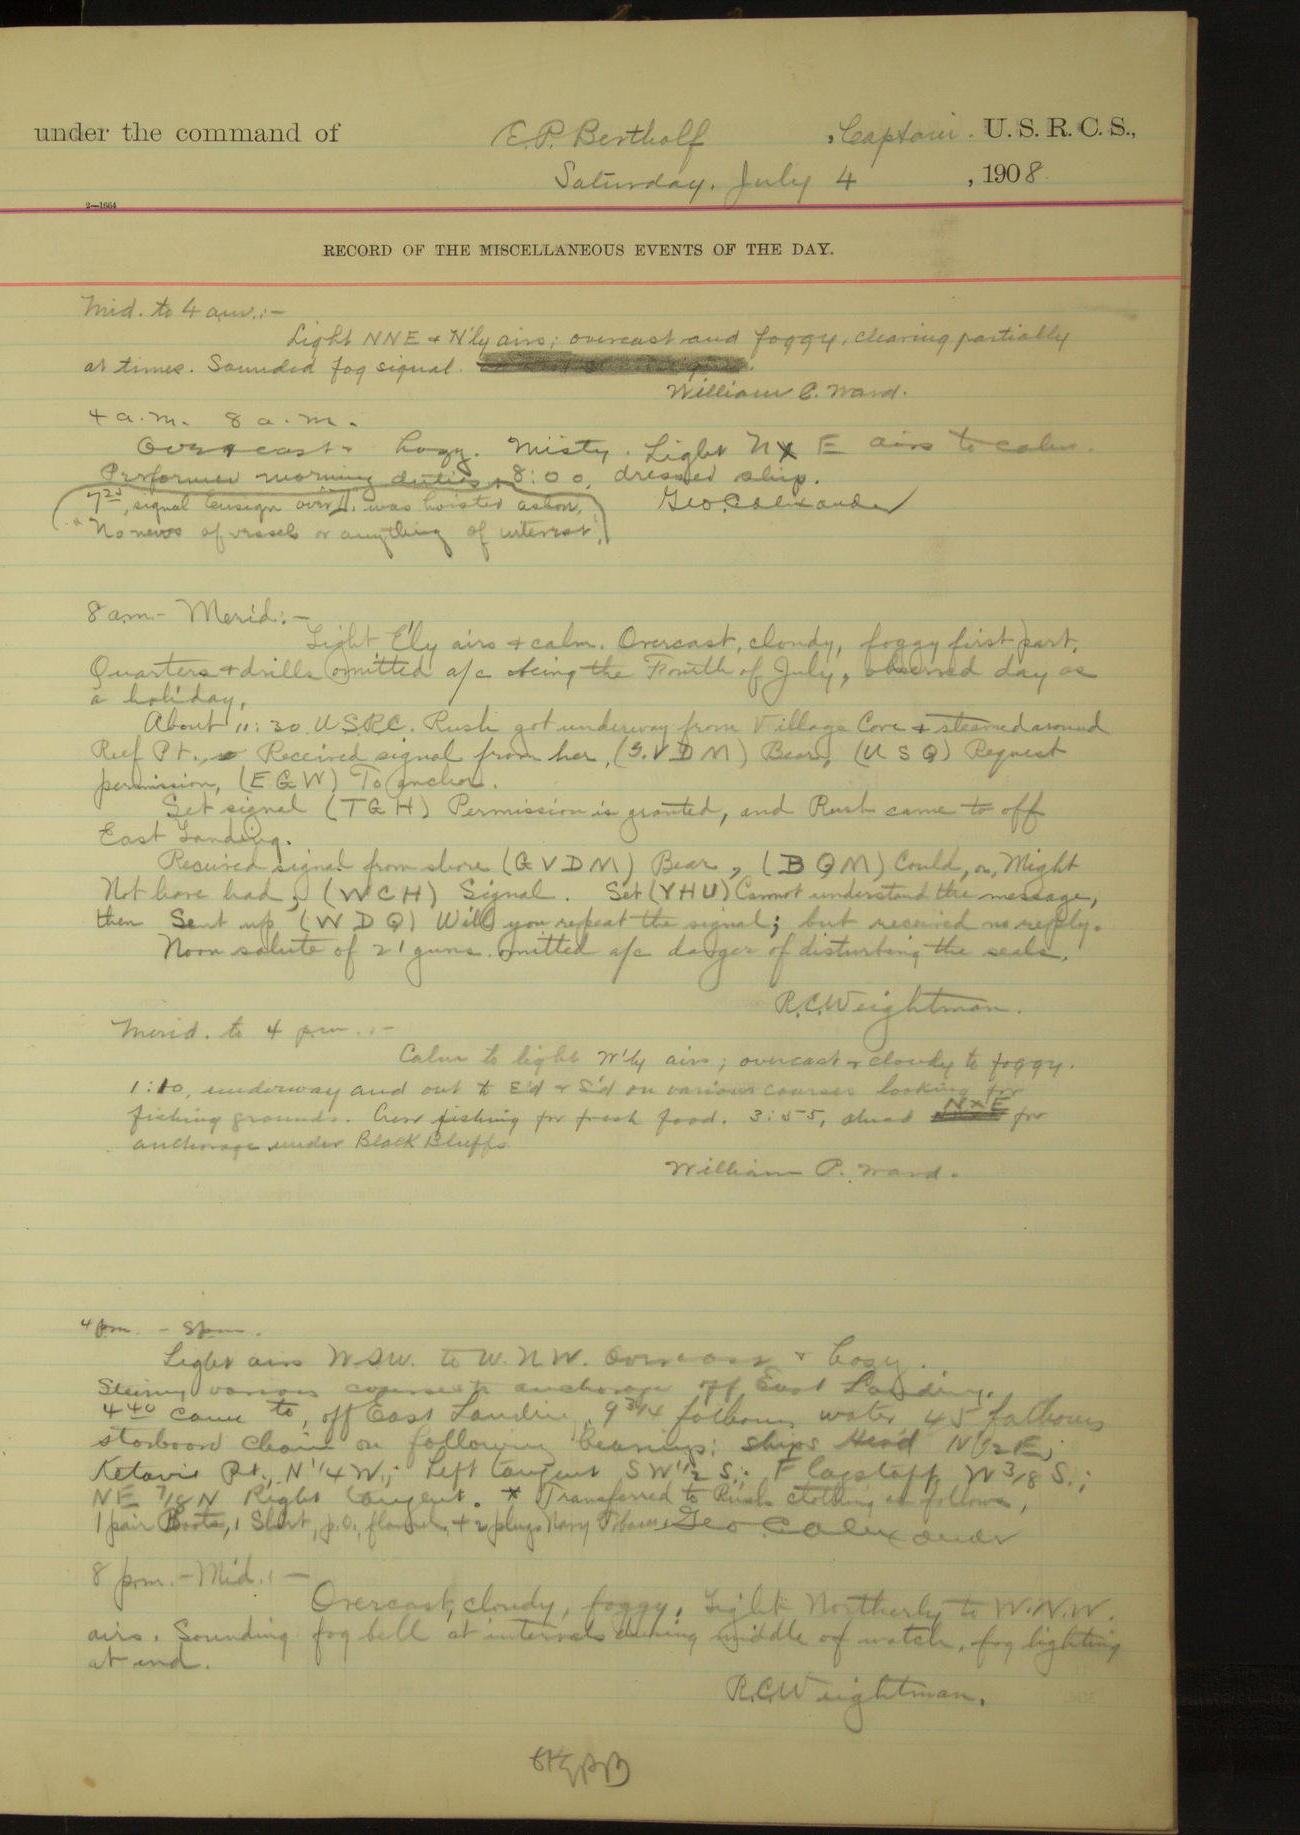 under the command of E.P. Bertholf, Captain. U. S. R. C. S.,
Saturday, July 4, 1908
2—1664
RECORD OF THE MISCELLANEOUS EVENTS OF THE DAY.
Mid. to 4 am.:-
Light NNE + N'ly airs; overcast and foggy, clearing partially
at times. Sounded fog signal.
William C. Ward.
4 a.m. 8 a.m.
Overcast hazy. Misty. Light NxE airs to calm.
Performed morning duties 8:00, dressed ship.
signal Ensign over was hoisted ashore, Geo. C. Alexander
"No news of vessels or anything of interest."
8 am - Merid:-
Light E'ly airs + calm. Overcast, cloudy, foggy first part.
Quarters + drills omitted a/c being the Fourth of July, observed day as
a holiday.
About 11:30 U.S.R.C. Rush got underway from Village Cove + steamed around
Reef Pt., Received signal from her, (G.V D M) Bear, (U S Q) Request
permission, (E G W) To anchor.
Set signal (T G H) Permission is granted, and Rush came to off
East Landing.
Received signal from shore (G V D M) Bear, (B Q M) Could, or, Might
Not have had, (W C H) Signal. Set (Y H U) Cannot understand the message,
then Sent up (W D Q) Will you repeat the signal; but received no reply.
Noon salute of 21 guns omitted a/c danger of disturbing the seals.
R.C. Weightman.
Merid. to 4 pm.:-
Calm to light W'ly airs; overcast + cloudy to foggy.
1:10, underway and out to E'd + S'd on various courses looking for
fishing grounds. Crew fishing for fresh food. 3:55, ahead NxE for
anchorage under Black Bluffs
William C. Ward.
4 pm. - 8 pm.
Light airs W.S.W. to W.N.W. Overcast + hazy.
Steaming various courses to anchorage off East Landing.
4 40 came to, off East Landing, 9 3/4 fathoms water 45 fathoms
starboard chain on following bearings: ships Head N 1/2 E;
Ketavie Pt., N 1/4 W; Left tangent SW 1/2 S; Flagstaff W 3/8 S.;
NE 7/8 N Right tangent. * Transferred to Rush clothing as follows,
1 pair Boots, 1 Shirt, flannel, + 2 plugs Navy Tobacco. Geo. C. Alexander
8 pm. - Mid.:-
Overcast, cloudy, foggy. Light Northerly to W.N.W.
airs. Sounding fog bell at intervals during middle of watch, fog lighting
at end.
R.C. Weightman.